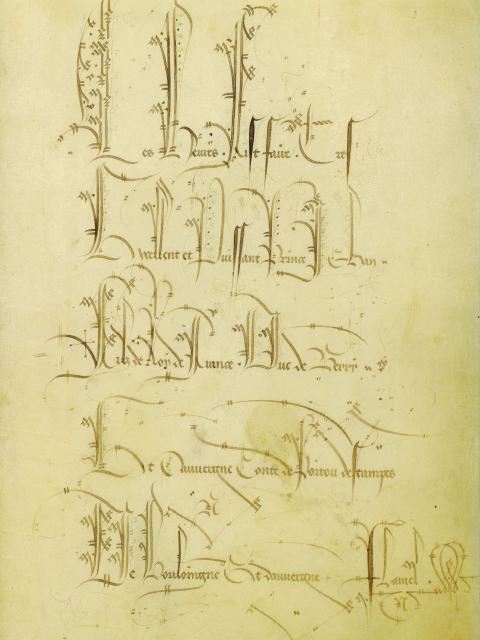 Ces Heures fist faire Tres
Excellent et Puissant Prince Jehan
Filz de Roy de France Duc de Berry
Et dauvergne Conte de Poitou destampes
De Bouloingne Et dauvergne Flamel